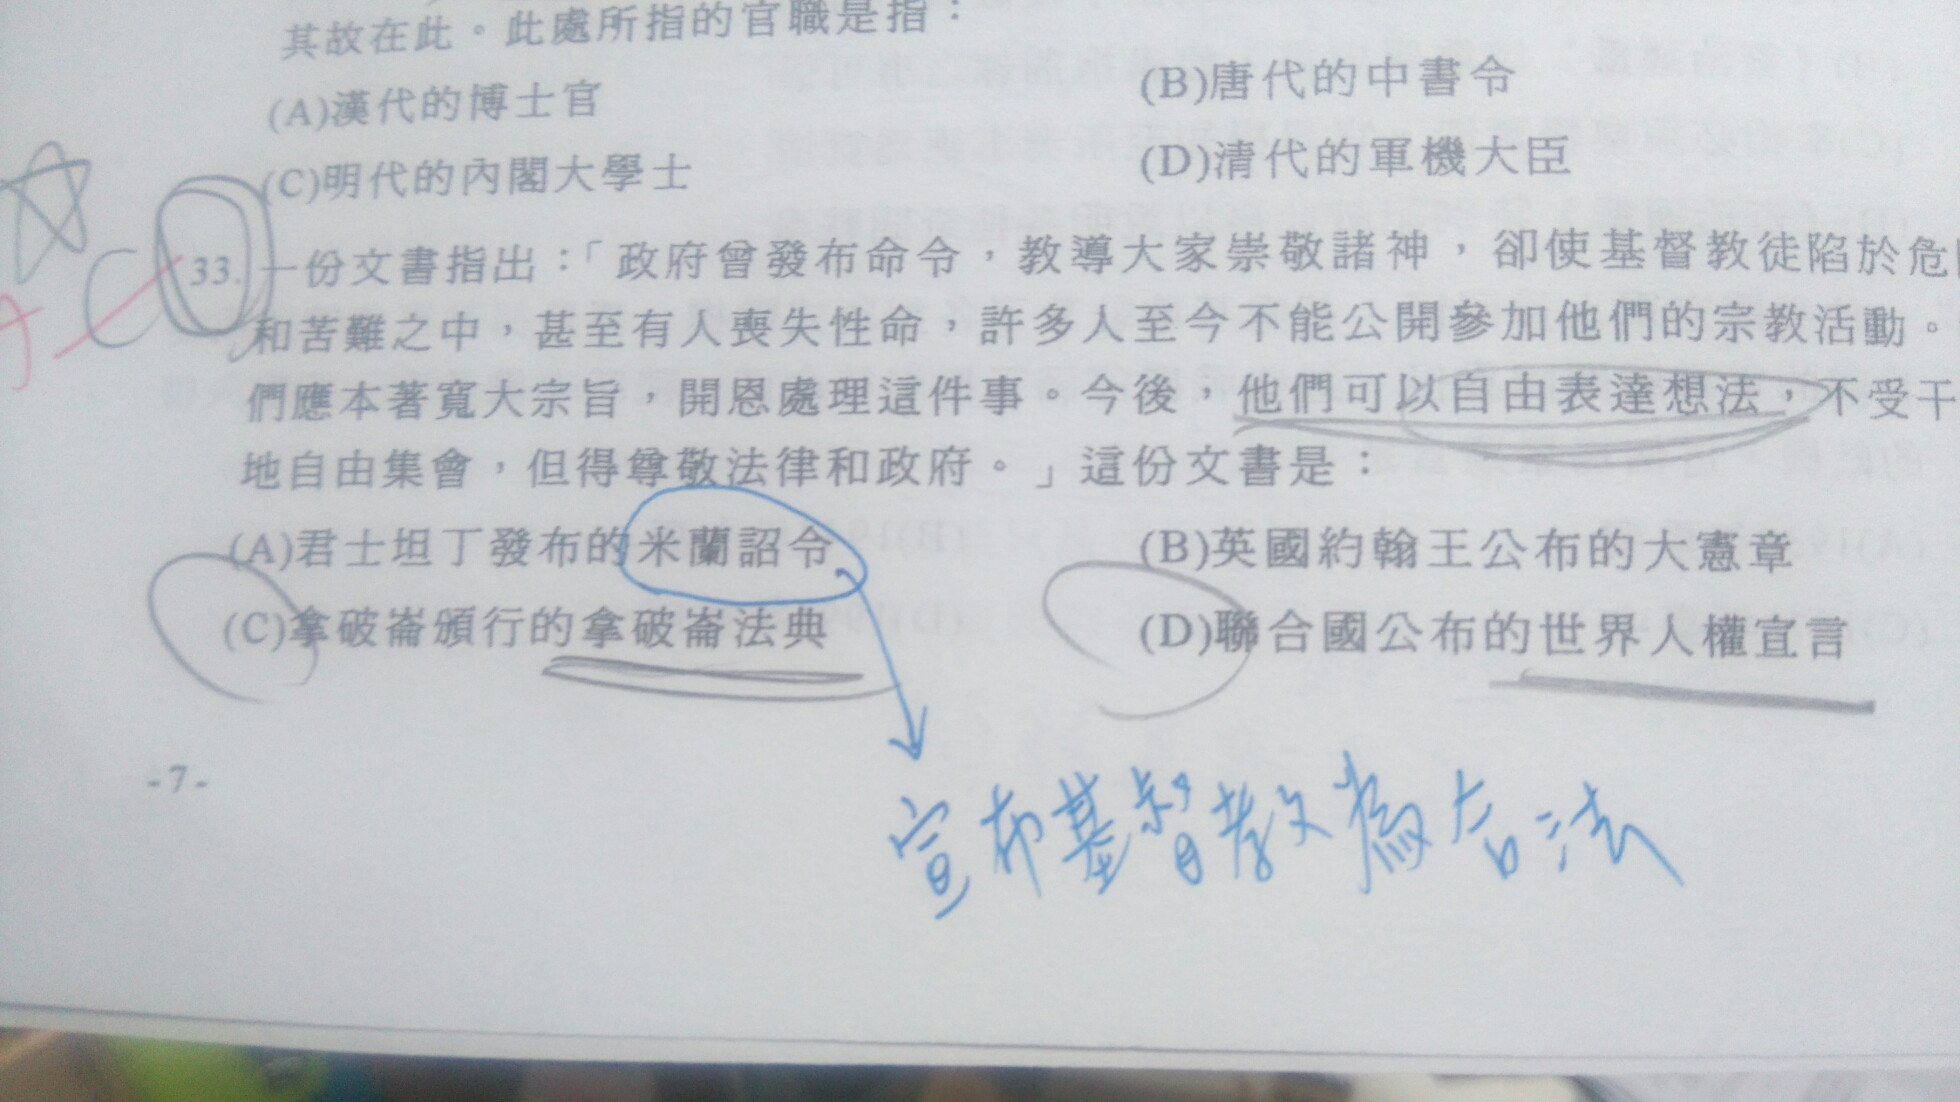 其故在此。此處所指的官職是指：
(A)漢代的博士官
(B)唐代的中書令
(C)明代的內閣大學士
(D)清代的軍機大臣
C
33. 一份文書指出：「政府曾發布命令，教導大家崇敬諸神，卻使基督教徒陷於危
和苦難之中，甚至有人喪失性命，許多人至今不能公開參加他們的宗教活動。
們應本著寬大宗旨，開恩處理這件事。今後，他們可以自由表達想法，不受干
地自由集會，但得尊敬法律和政府。」這份文書是：
(A)君士坦丁發布的米蘭詔令
(B)英國約翰王公布的大憲章
(C)拿破崙頒行的拿破崙法典
(D)聯合國公布的世界人權宣言
-7-
宣布基督教為合法